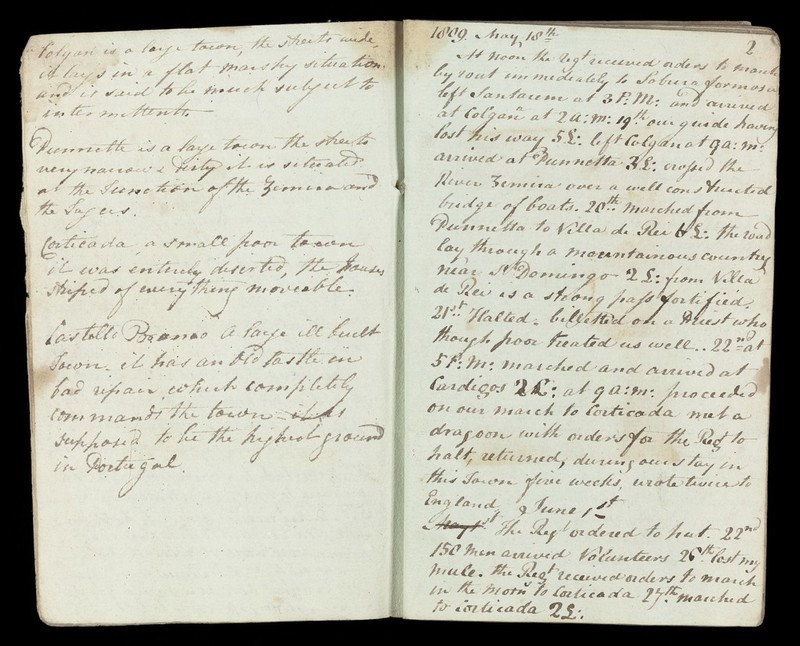 Golgan is a large town, the streets wide,
it lays in a flat marshy situation
and is said to be much subject to
intermittents
Punnette is a large town the streets
very narrow & dirty it is situated
at the Junction of the Zemira and
the Tagus.
Corticada a small poor town
it was entirely deserted, the houses
striped of every thing moveable.
Castello Branco a large ill built
Town. it has an old Castle in
bad repair which completely
commands the town it is
supposed to be the highest ground
in Portugal.
2
1809. May, 18th
At noon the Regt received orders to march
by rout immediately to Sobira formosa
left Santarem at 3 P: M: and arrived
at Golgan at 2 a: m: 19th our guide having
lost his way 5 L: left Golgan at 9 a: m:
arrived at Punnetta 3 L: crossed the
River Zemira over a well constructed
bridge of boats. 20th marched from
Punnetta to Villa de Rei 6 L: the road
lay through a mountainous country
near St Domingo 2 L: from Villa
de Rei is a strong pass fortified.
21st Halted. billetted on a Priest who
though poor treated us well.. 22nd at
5 P: M: marched and arrived at
Cardigos 2 L: at 9 a: m: proceeded
on our march to Corticada met a
dragoon with orders for the Regt to
halt, returned, during our stay in
this Town five weeks, wrote twice to
England, June 1st
May 1st The Regt ordered to hut. 22nd
150 Men arrived Volunteers 26th lost my
mule. the Regt received orders to march
in the morng to Corticada 27th marched
to Corticada 2 L: